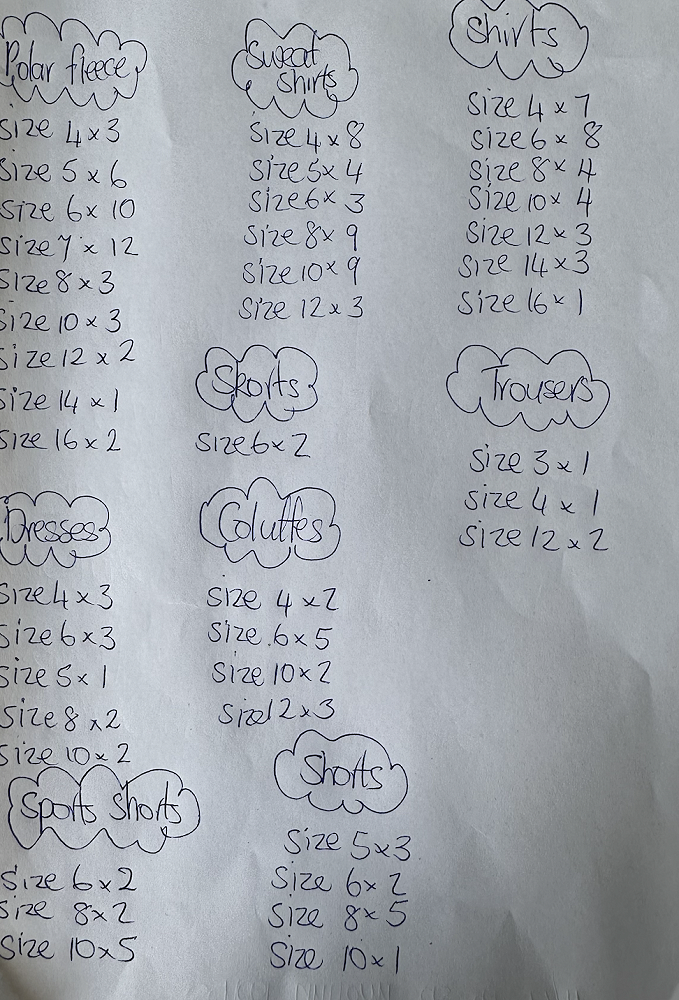 Polar fleece
Size 4 x 3
Size 5 x 6
Size 6 x 10
Size 7 x 12
Size 8 x 3
Size 10 x 3
Size 12 x 2
Size 14 x 1
Size 16 x 2
Dresses
Size 4 x 3
Size 6 x 3
Size 5 x 1
Size 8 x 2
Size 10 x 2
Sports Shorts
Size 6 x 2
Size 8 x 2
Size 10 x 5
Sweat
shirts
Size 4 x 8
Size 5 x 4
Size 6 x 3
Size 8 x 9
Size 10 x 9
Size 12 x 3
Skorts
Size 6 x 2
Coluttes
Size 4 x 2
Size 6 x 5
Size 10 x 2
Size 12 x 3
Shorts
Size 5 x 3
Size 6 x 2
Size 8 x 5
Size 10 x 1
Shirts
Size 4 x 7
Size 6 x 8
Size 8 x 4
Size 10 x 4
Size 12 x 3
Size 14 x 3
Size 16 x 1
Trousers
Size 3 x 1
Size 4 x 1
Size 12 x 2